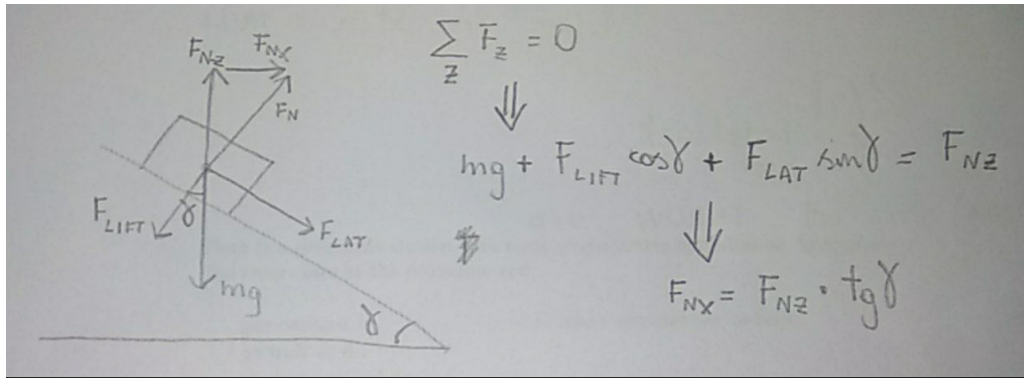 F_NZ F_NX
F_N
F_LIFT γ
F_LAT
mg
γ
∑_Z F_Z = 0
⇓
mg + F_LIFT cosγ + F_LAT sinγ = F_NZ
⇓
F_NX = F_NZ · tgγ